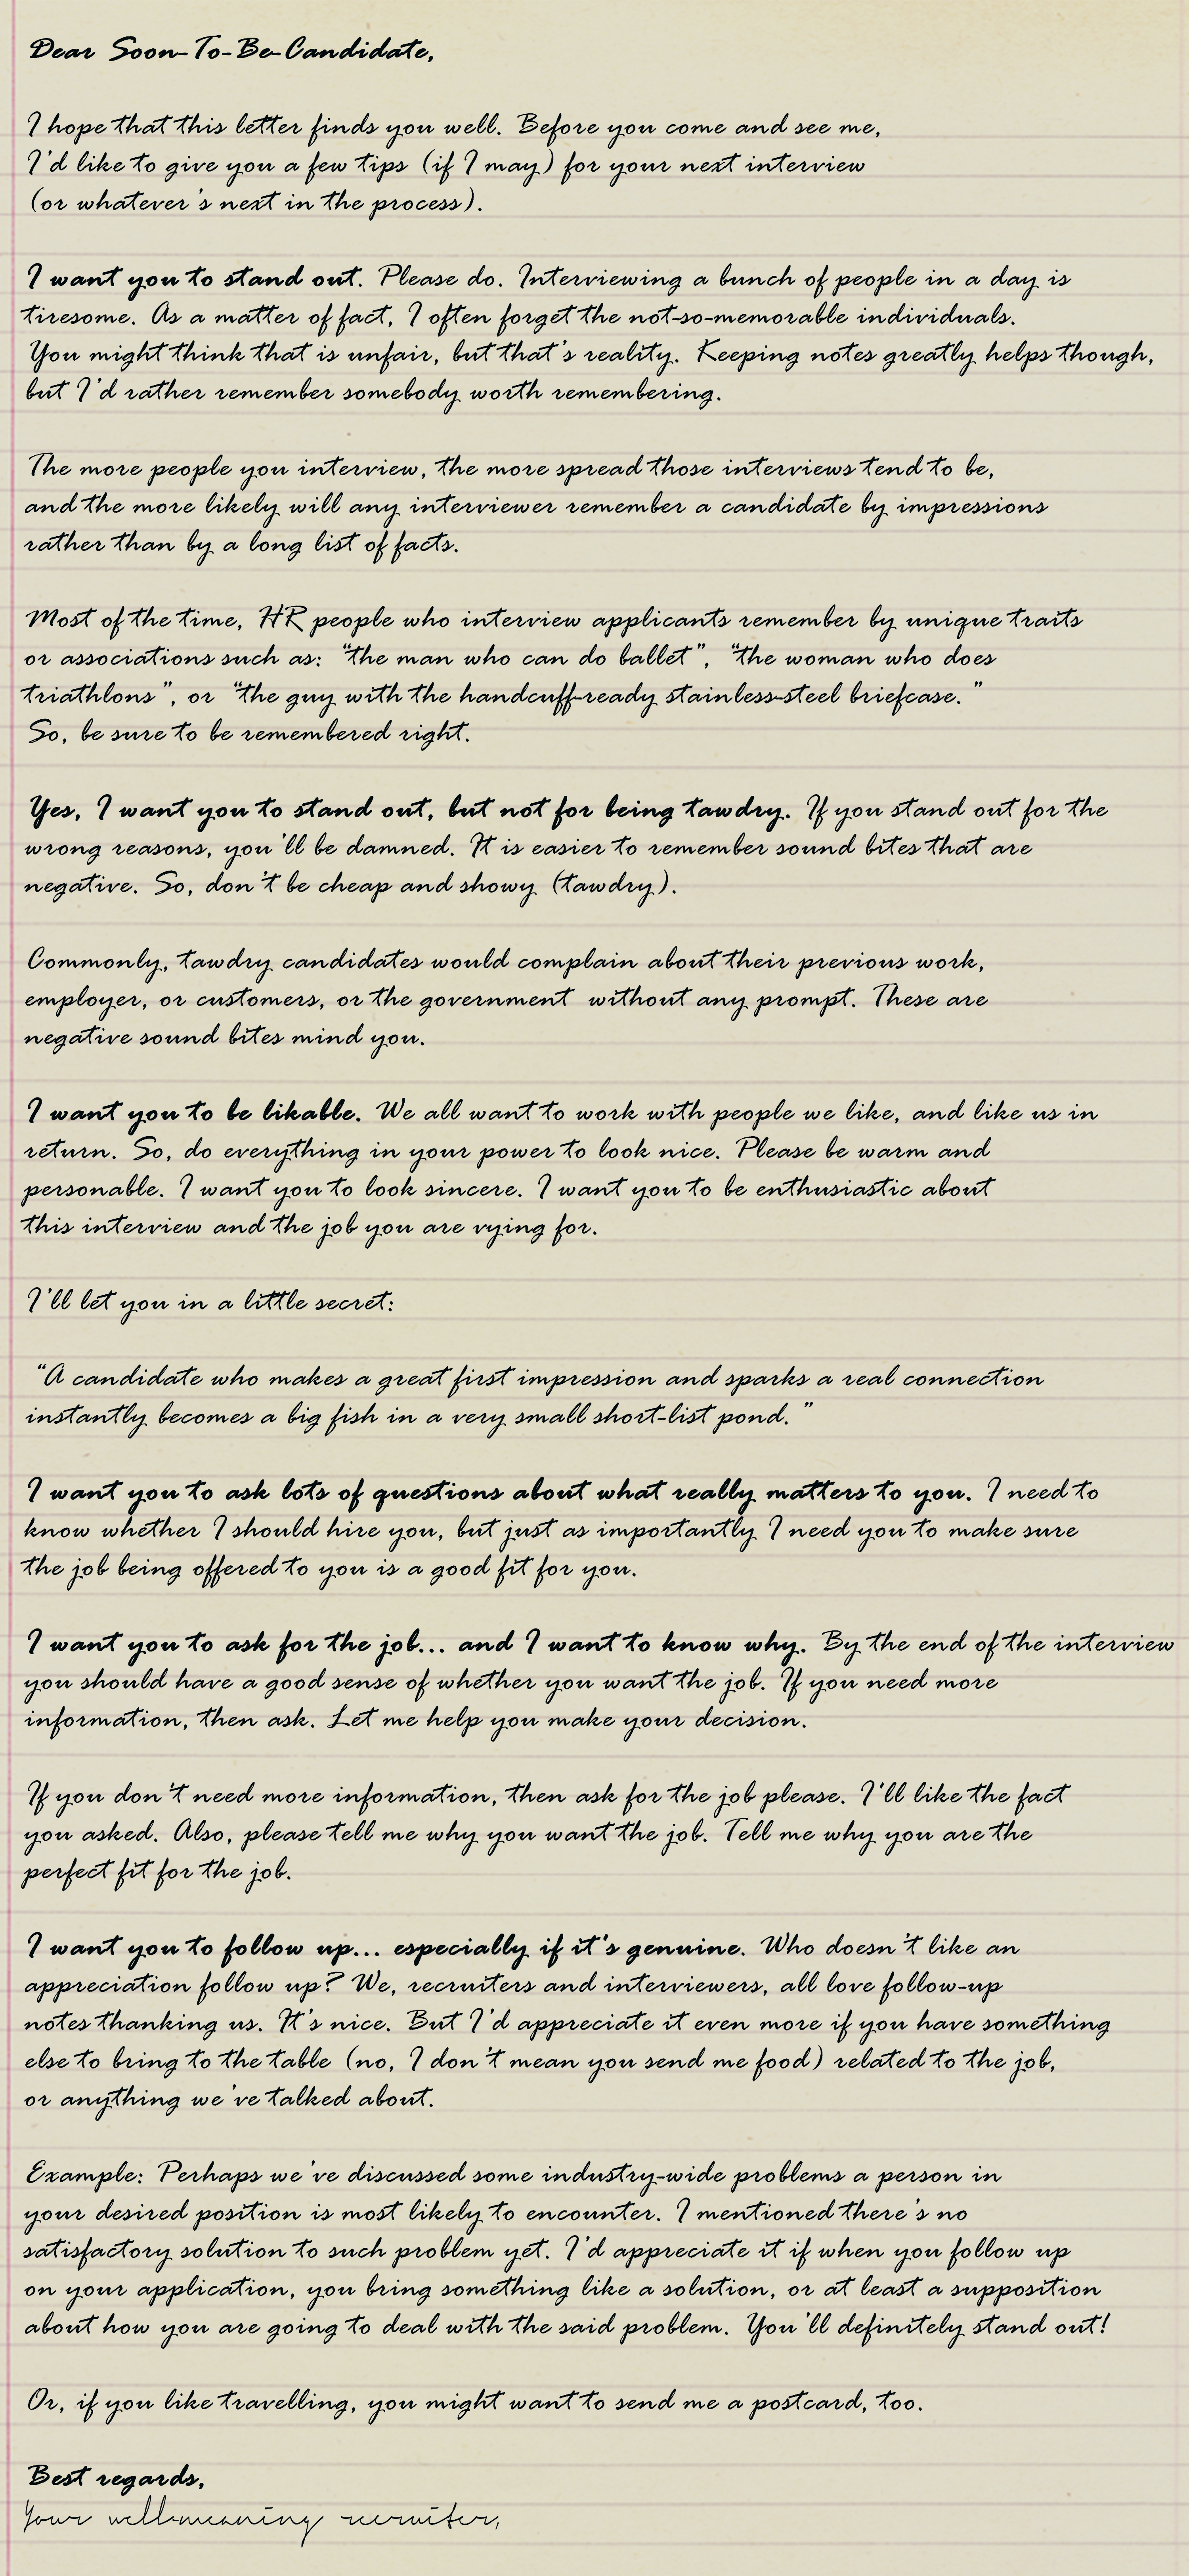 Dear Soon-To-Be-Candidate,
I hope that this letter finds you well. Before you come and see me,
I'd like to give you a few tips (if I may) for your next interview
(or whatever's next in the process).
I want you to stand out. Please do. Interviewing a bunch of people in a day is
tiresome. As a matter of fact, I often forget the not-so-memorable individuals.
You might think that is unfair, but that's reality. Keeping notes greatly helps though,
but I'd rather remember somebody worth remembering.
The more people you interview, the more spread those interviews tend to be,
and the more likely will any interviewer remember a candidate by impressions
rather than by a long list of facts.
Most of the time, HR people who interview applicants remember by unique traits
or associations such as: "the man who can do ballet", "the woman who does
triathlons", or "the guy with the handcuff-ready stainless-steel briefcase."
So, be sure to be remembered right.
Yes, I want you to stand out, but not for being tawdry. If you stand out for the
wrong reasons, you'll be damned. It is easier to remember sound bites that are
negative. So, don't be cheap and showy (tawdry).
Commonly, tawdry candidates would complain about their previous work,
employer, or customers, or the government without any prompt. These are
negative sound bites mind you.
I want you to be likable. We all want to work with people we like, and like us in
return. So, do everything in your power to look nice. Please be warm and
personable. I want you to look sincere. I want you to be enthusiastic about
this interview and the job you are vying for.
I'll let you in a little secret:
"A candidate who makes a great first impression and sparks a real connection
instantly becomes a big fish in a very small short-list pond."
I want you to ask lots of questions about what really matters to you. I need to
know whether I should hire you, but just as importantly I need you to make sure
the job being offered to you is a good fit for you.
I want you to ask for the job... and I want to know why. By the end of the interview
you should have a good sense of whether you want the job. If you need more
information, then ask. Let me help you make your decision.
If you don't need more information, then ask for the job please. I'll like the fact
you asked. Also, please tell me why you want the job. Tell me why you are the
perfect fit for the job.
I want you to follow up... especially if it's genuine. Who doesn't like an
appreciation follow up? We, recruiters and interviewers, all love follow-up
notes thanking us. It's nice. But I'd appreciate it even more if you have something
else to bring to the table (no, I don't mean you send me food) related to the job,
or anything we've talked about.
Example: Perhaps we've discussed some industry-wide problems a person in
your desired position is most likely to encounter. I mentioned there's no
satisfactory solution to such problem yet. I'd appreciate it if when you follow up
on your application, you bring something like a solution, or at least a supposition
about how you are going to deal with the said problem. You'll definitely stand out!
Or, if you like travelling, you might want to send me a postcard, too.
Best regards,
Your well-meaning recruiter,